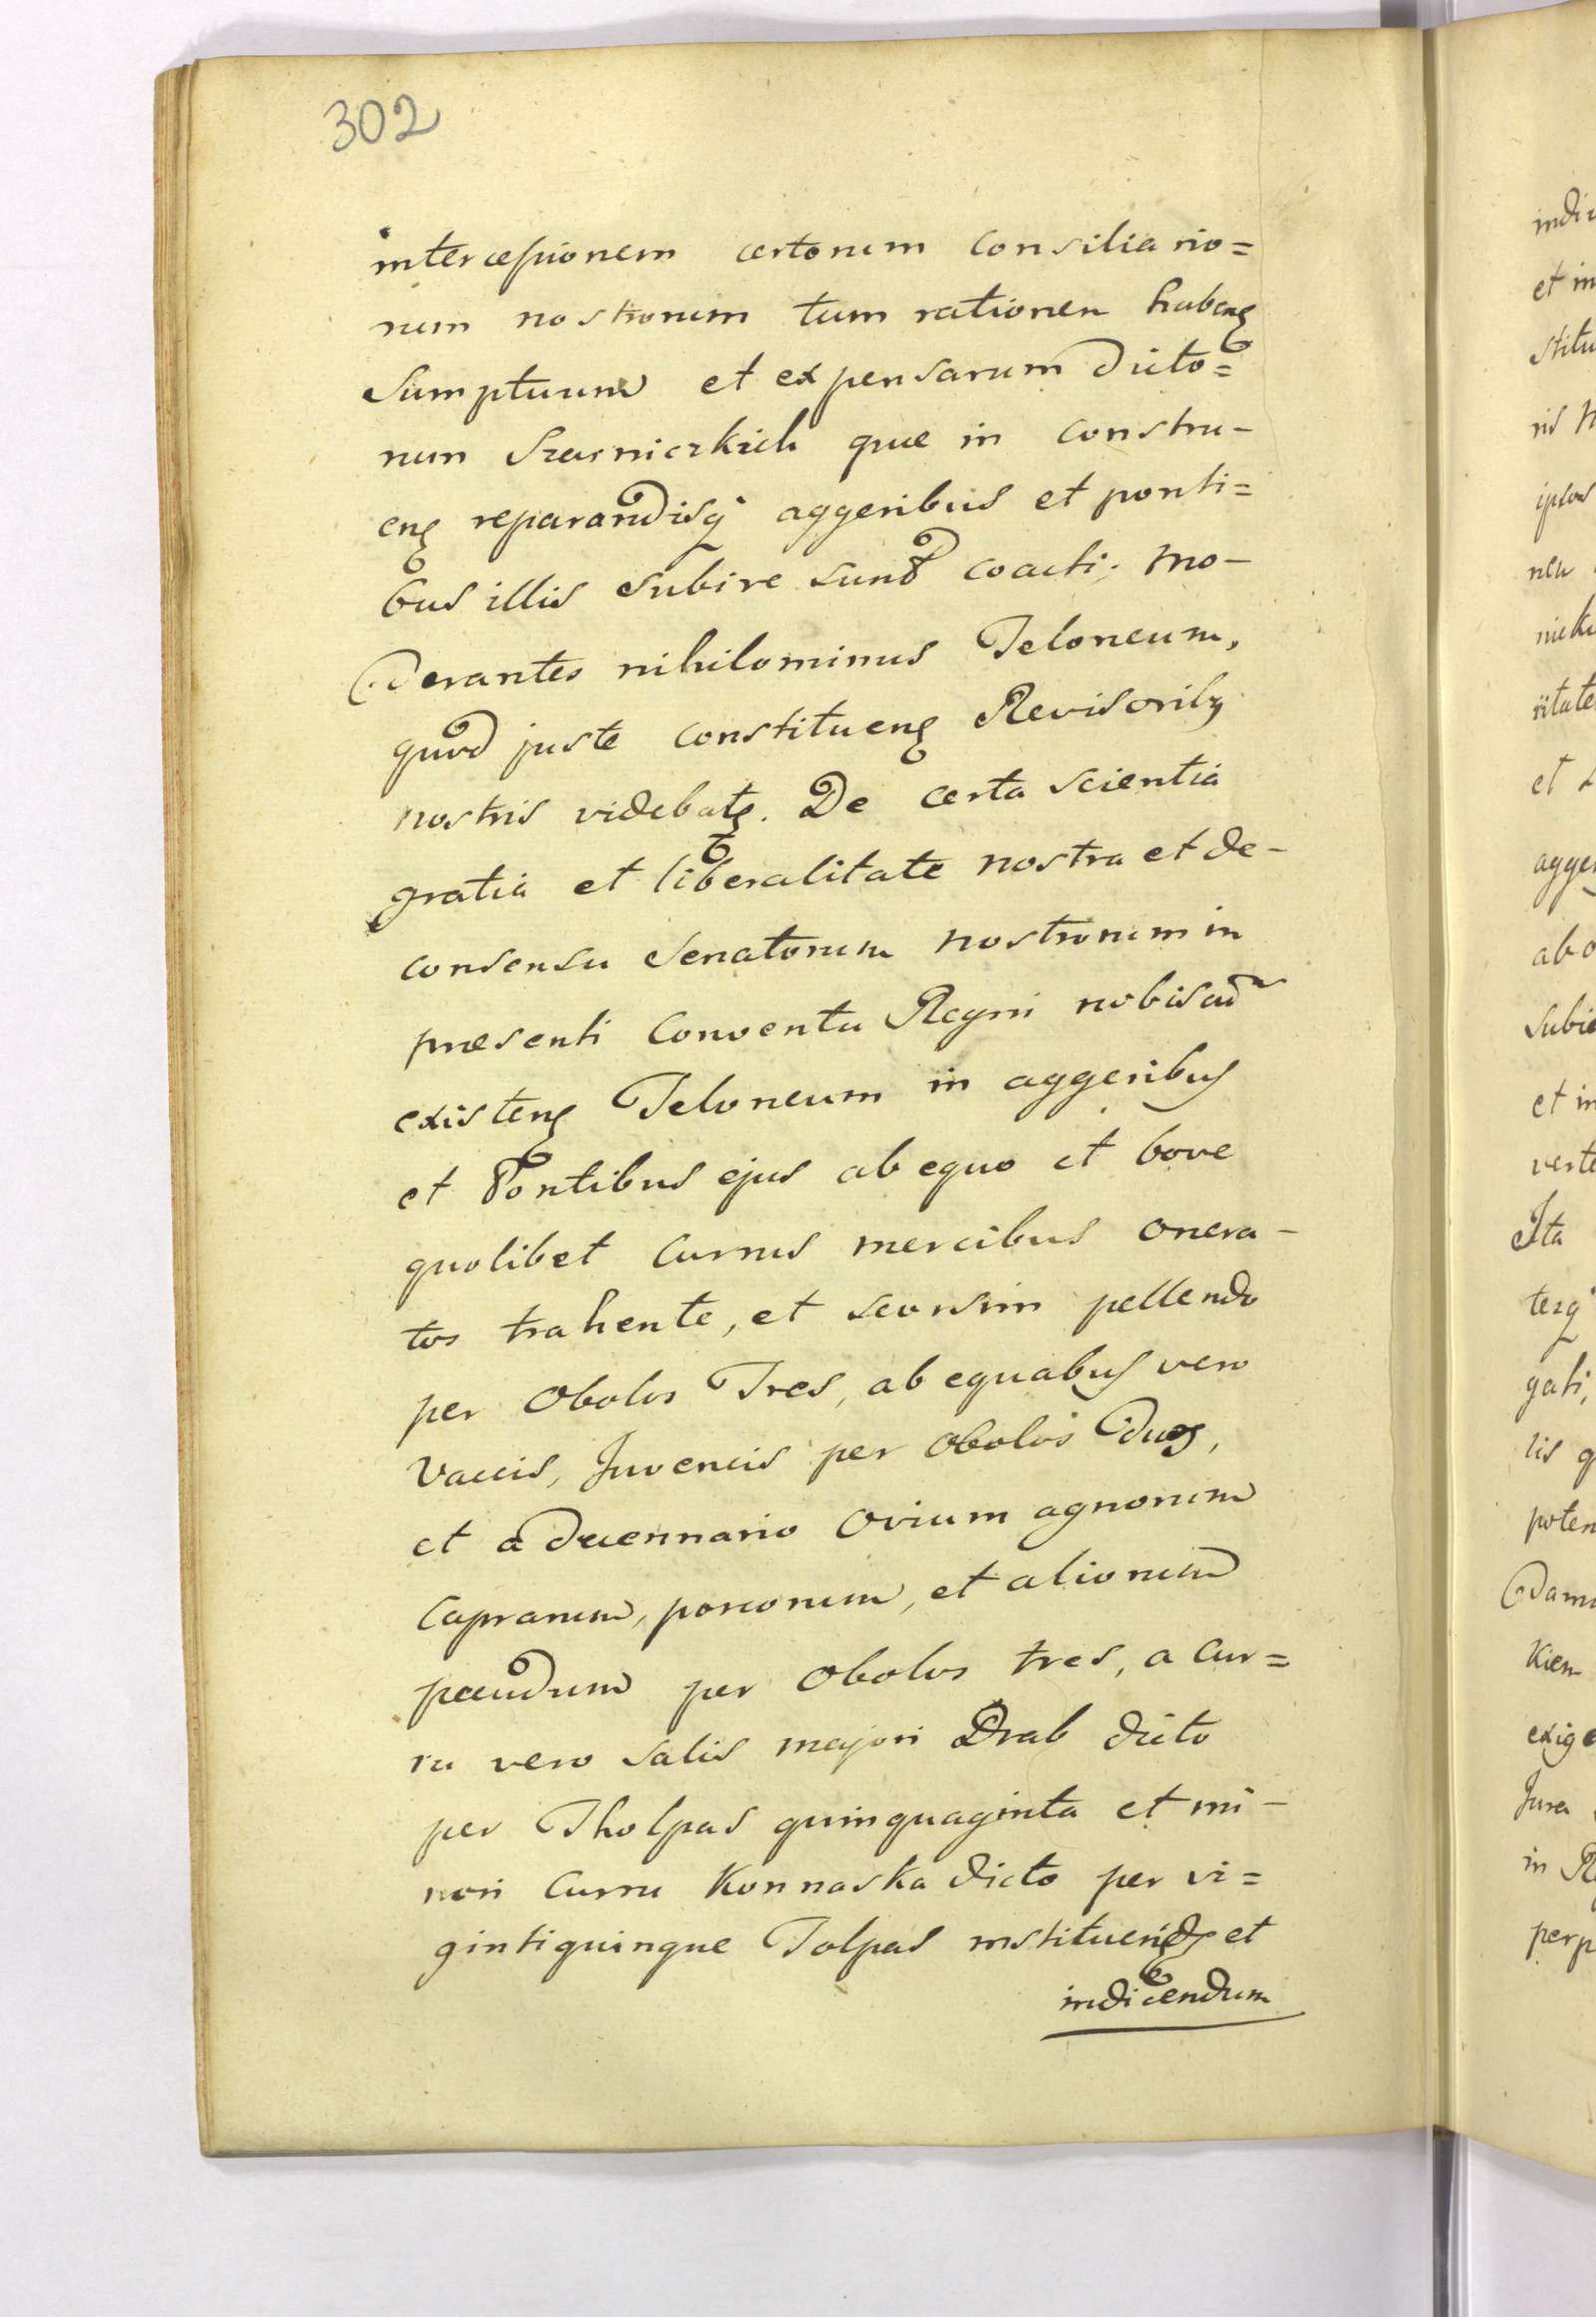 302
intercessionem certorum consiliario=
rum nostrorum tum rationem habeng
Sumptuum et expensarum dicto=
rum Szarniczkich quæ in constru-
eng reparandisq aggeribus et ponti=
bus illis subire sunt coacti; mo-
derantes nihilominus Teloneum,
quod juste constitueng Revisoribz
nostris videbatz. De certa scientia
gratia et liberalitate nostra et de-
consensu Senatorum nostrorum in
præsenti Conventu Regni nobiscũ
existeng Teloneum in aggeribus
et Pontibus ejus ab equo et bove
quolibet Currus mercibus onera-
tos trahente, et seorsim pellendo
per Obolos Tres, ab equabus vero
Vaccis, Juvencis per obolos Duos,
et a Decennario Ovium agnorum
Caprarum, porcorum, et aliorum
pecudum per Obolos tres, a Cur=
ru vero salis majori Drab dicto
per Tholpas quinquaginta et mi-
nori Curru Konnaska dicto per vi=
gintiquinque Tolpas instituendz et
indicendum
indi
et in
stitu
ris
ipsos
neu
nicki
ritate
et
agger
ab o
subi
et in
verte
Ita
tezq
gati,
lis q
poten
Dam
kiem
exige
Jura
in R
perp